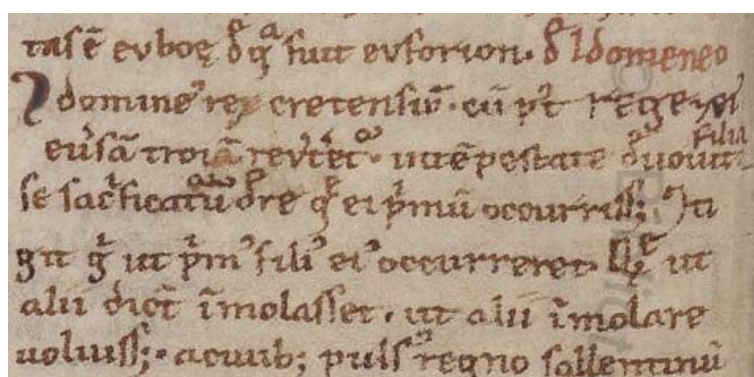 tas ē euboę d̄ q̄ fuit euforion. d̄ Idomeneo
Idomine' rex cretensiū. cū p't
euersā troiā reuertet'. ī tēpestate deuouit
filia
se sac'ficatu' d̄ re q̄ ei p'mū occurriss;. 
git g° ut p'm' fili' ei' occurreret. ut
alii dic̄t īmolasset. ut alii īmolare
uoluiss;. a ciuib; puls' regno sallentinū